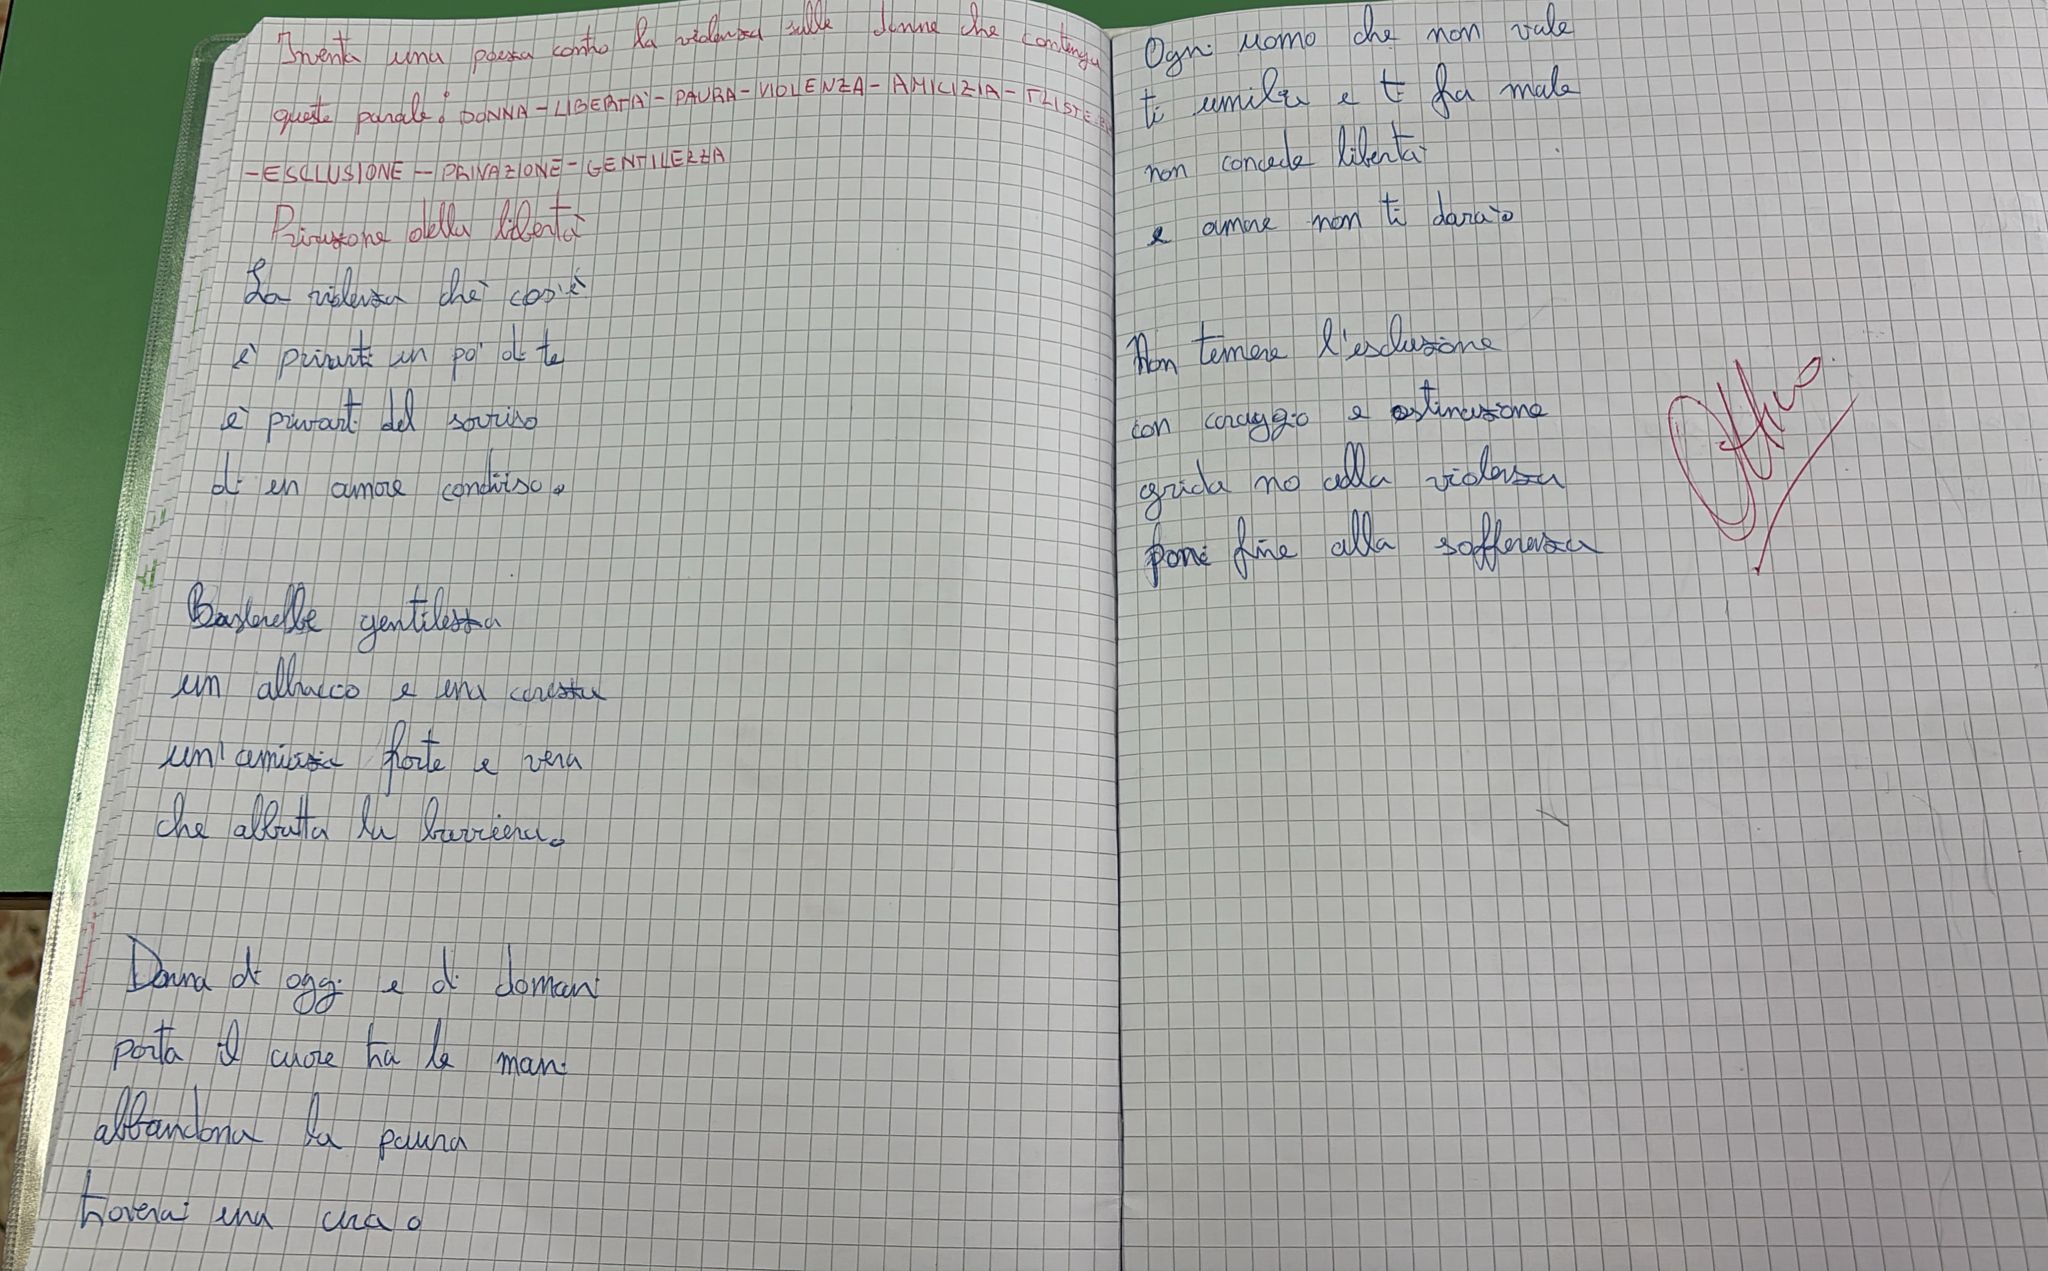 Inventa una poesia contro la violenza sulle donne che contenga
queste parole: DONNA-LIBERTÀ-PAURA-VIOLENZA-AMICIZIA-TRISTEZZA
-ESCLUSIONE-PRIVAZIONE-GENTILEZZA
Privazione della libertà
La violenza che cos'è
è privarti un po' di te
è privarti del sorriso
di un amore condiviso.
Basterebbe gentilezza
un abbraccio e una carezza
un'amicizia forte e vera
che abbatta la barriera.
Donna di oggi e di domani
porta il cuore tra le mani
abbandona la paura
troverai una cura.
Ogni uomo che non vale
ti umilia e ti fa male
non concede libertà
e amore non ti darà.
Non temere l'esclusione
con coraggio e ostinazione
grida no alla violenza
poni fine alla sofferenza